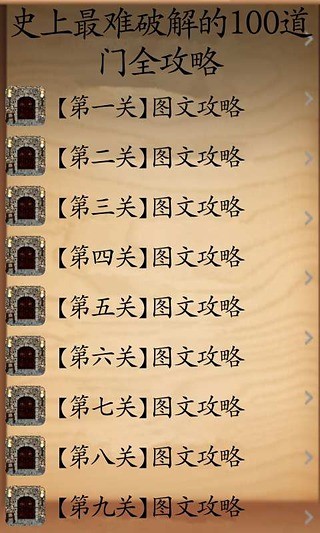 史上最难破解的100道
门全攻略
【第一关】图文攻略
【第二关】图文攻略
【第三关】图文攻略
【第四关】图文攻略
【第五关】图文攻略
【第六关】图文攻略
【第七关】图文攻略
【第八关】图文攻略
【第九关】图文攻略